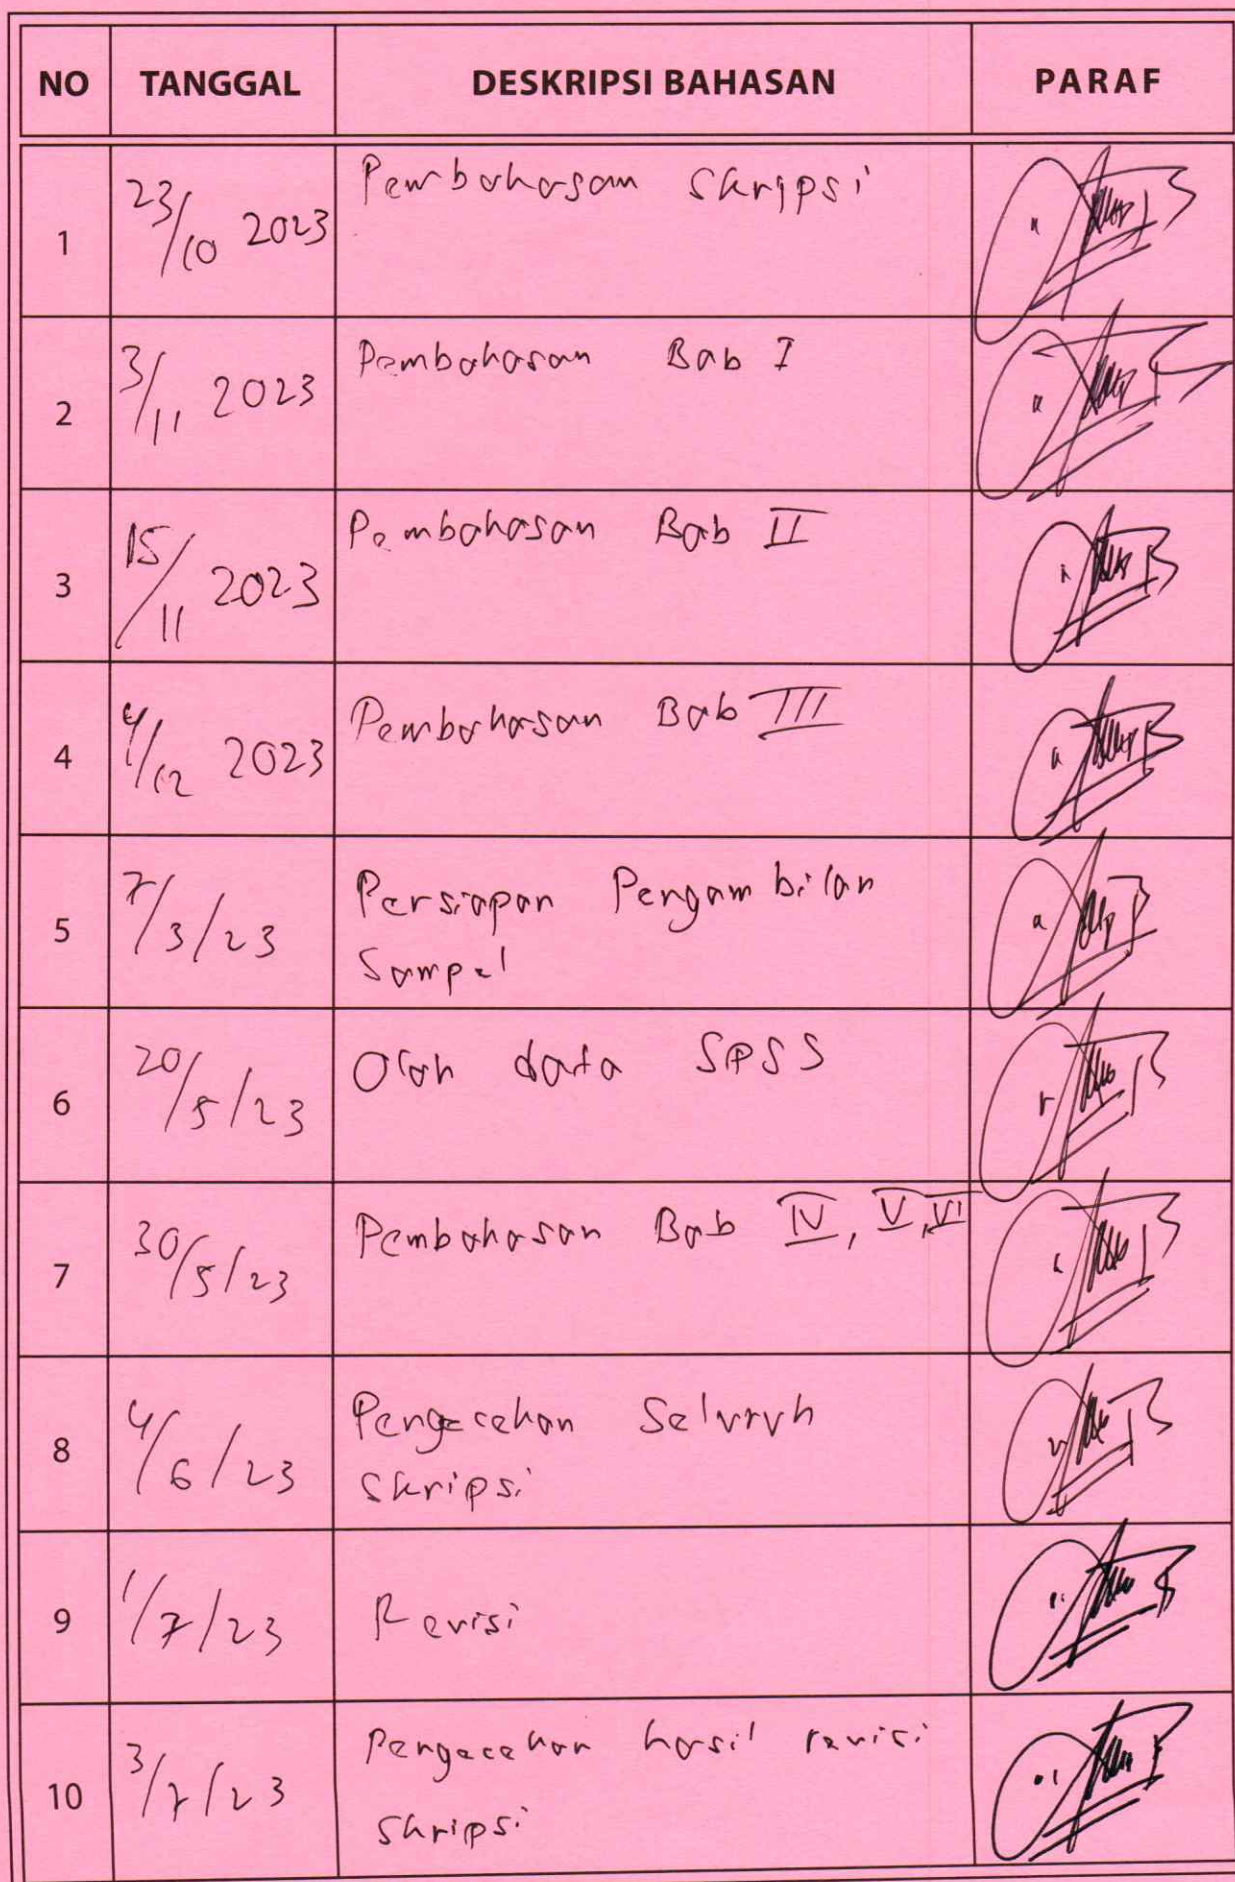 NO TANGGAL DESKRIPSI BAHASAN PARAF
1 23/10 2023 Pembahasan Skripsi
2 3/11 2023 Pembahasan Bab I
3 15/11 2023 Pembahasan Bab II
4 4/12 2023 Pembahasan Bab III
5 7/3/23 Persiapan Pengambilan
Sampel
6 20/5/23 Olah data SPSS
7 30/5/23 Pembahasan Bab IV, V, VI
8 4/6/23 Pengecehan Seluruh
Skripsi
9 1/7/23 Revisi
10 3/7/23 Pengecekan hasil revisi
skripsi